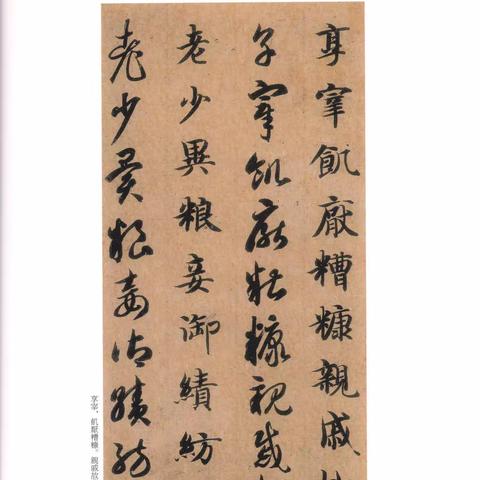 享宰飢厭糟糠親戚
享宰飢厭糟糠親戚
老少異粮妾御績紡
老少異粮妾御績紡
享宰，飢厭糟糠。親戚故